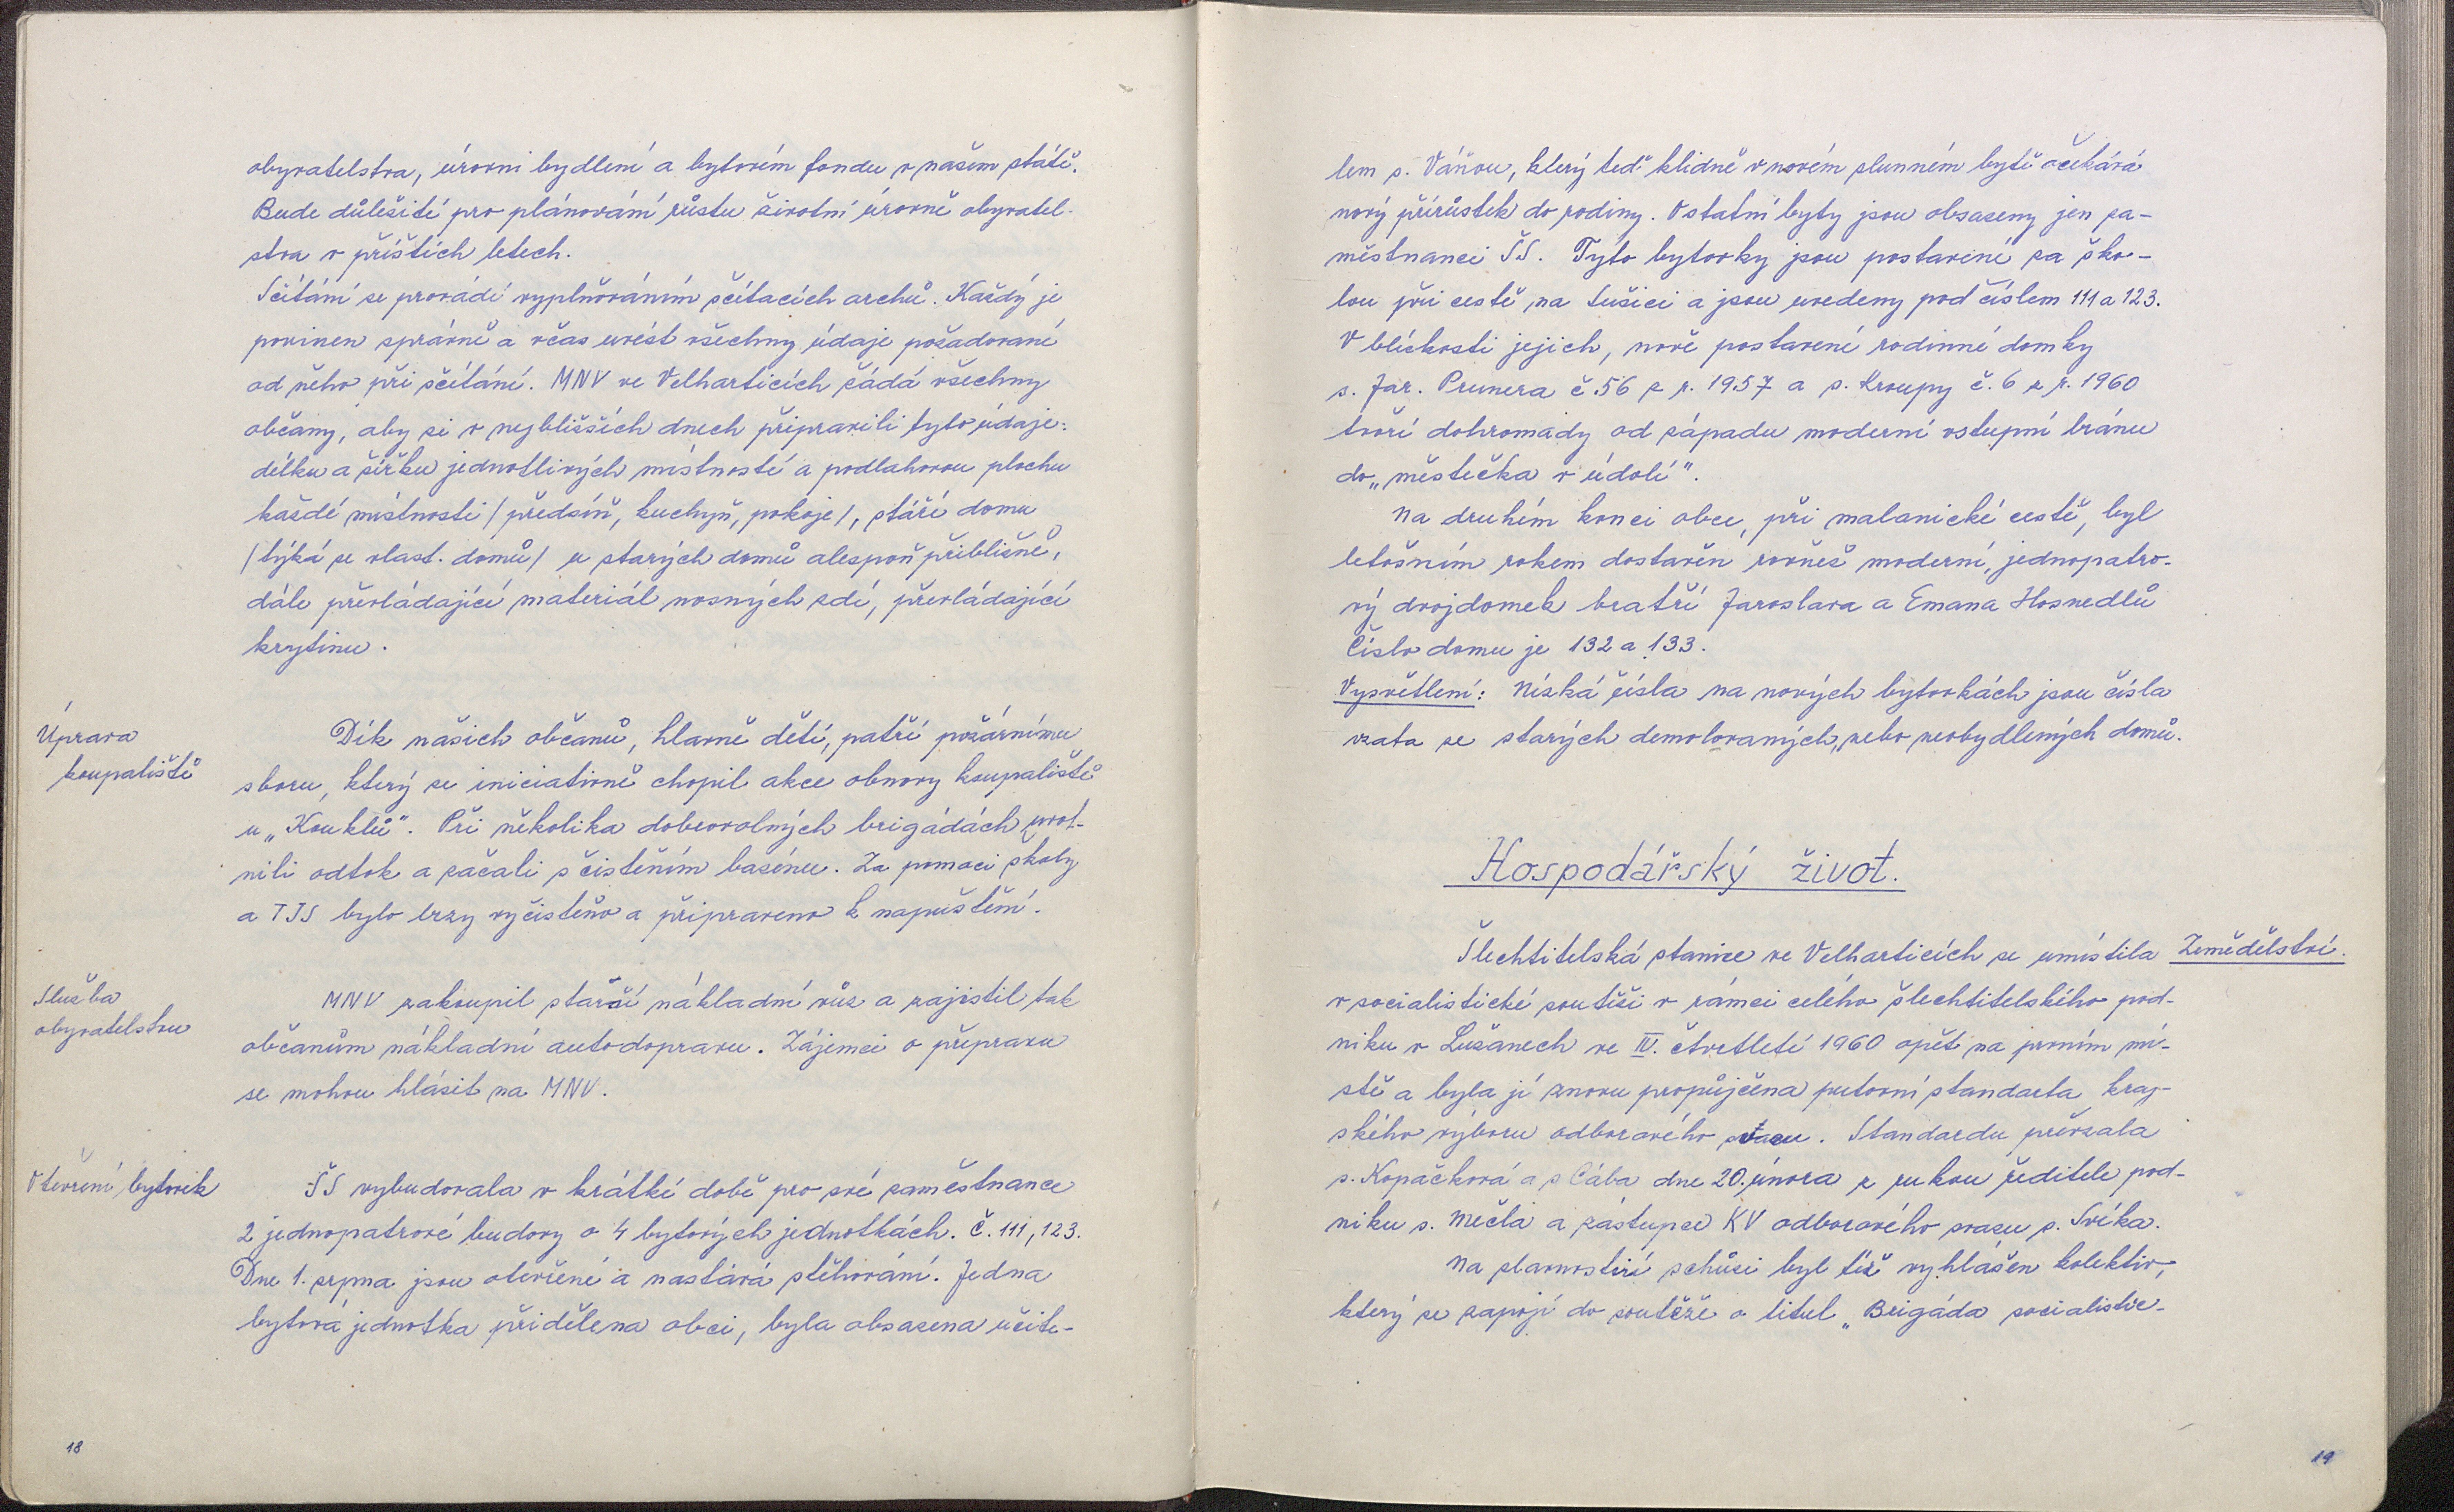 obyvatelstva, úrovni bydlení a bytovém fondu v našem státě.
Bude důležité pro plánování růstu životní úrovně obyvatel-
stva v příštích letech.
Sčítání se provádí vyplňováním sčítacích archů. Každý je
povinen správně a včas uvést všechny údaje požadované
od něho při sčítání. MNV ve Velharticích žádá všechny
občany, aby si v nejbližších dnech připravili tyto údaje:
délku a šířku jednotlivých místností a podlahovou plochu
každé místnosti /předsíň, kuchyň, pokoje/, stáří domu
/týká se vlast. domů/ u starých domů alespoň přibližně,
dále převládající materiál nosných zdí, převládající
krytinu.
Úprava
koupaliště
Dík našich občanů, hlavně dětí, patří požárnímu
sboru, který se iniciativně chopil akce obnovy koupaliště
u „Kouklů". Při několika dobrovolných brigádách uvol-
nili odtok a začali s čistěním bazénu. Za pomoci školy
a TJS bylo brzy vyčistěno a připraveno k napuštění.
Služba
obyvatelstvu
MNV zakoupil starší nákladní vůz a zajistil tak
občanům nákladní autodopravu. Zájemci o přepravu
se mohou hlásit na MNV.
Otevření bytovek
ŠS vybudovala v krátké době pro své zaměstnance
2 jednopatrové budovy o 4 bytových jednotkách. Č. 111, 123.
Dne 1. srpna jsou otevřené a nastává stěhování. Jedna
bytová jednotka přidělena obci, byla obsazena učite-
18
lem s. Váňou, který teď klidně v novém slunném bytě očekává
nový přírůstek do rodiny. Ostatní byty jsou obsazeny jen za-
městnanci ŠS. Tyto bytovky jsou postavené za ško-
lou při cestě na Sušici a jsou uvedeny pod číslem 111 a 123.
V blízkosti jejich, nově postavené rodinné domky
s. Jar. Prunera č. 56 z r. 1957 a s. Kroupy č. 6 z r. 1960
tvoří dohromady od západu moderní vstupní bránu
do „městečka v údolí".
Na druhém konci obce, při malanické cestě, byl
letošním rokem dostavěn rovněž moderní, jednopatro-
vý dvojdomek bratří Jaroslava a Emana Hosnedlů
Číslo domu je 132 a 133.
Vysvětlení: Nízká čísla na nových bytovkách jsou čísla
vzata ze starých demolovaných, nebo neobydlených domů.
Hospodářský život.
Zemědělství.
Šlechtitelská stanice ve Velharticích se umístila
v socialistické soutěži v rámci celého šlechtitelského pod-
niku v Lužanech ve IV. čtvrtletí 1960 opět na prvním mí-
stě a byla jí znovu propůjčena putovní standarta kraj-
ského výboru odborového svazu. Standardu převzala
s. Kopačková a s Cába dne 20. února z rukou ředitele pod-
niku s. Mečla a zástupce KV odborového svazu s. Svíka.
Na slavnostní schůzi byl též vyhlášen kolektiv,
který se zapojí do soutěže o titul „Brigáda socialistic-
19